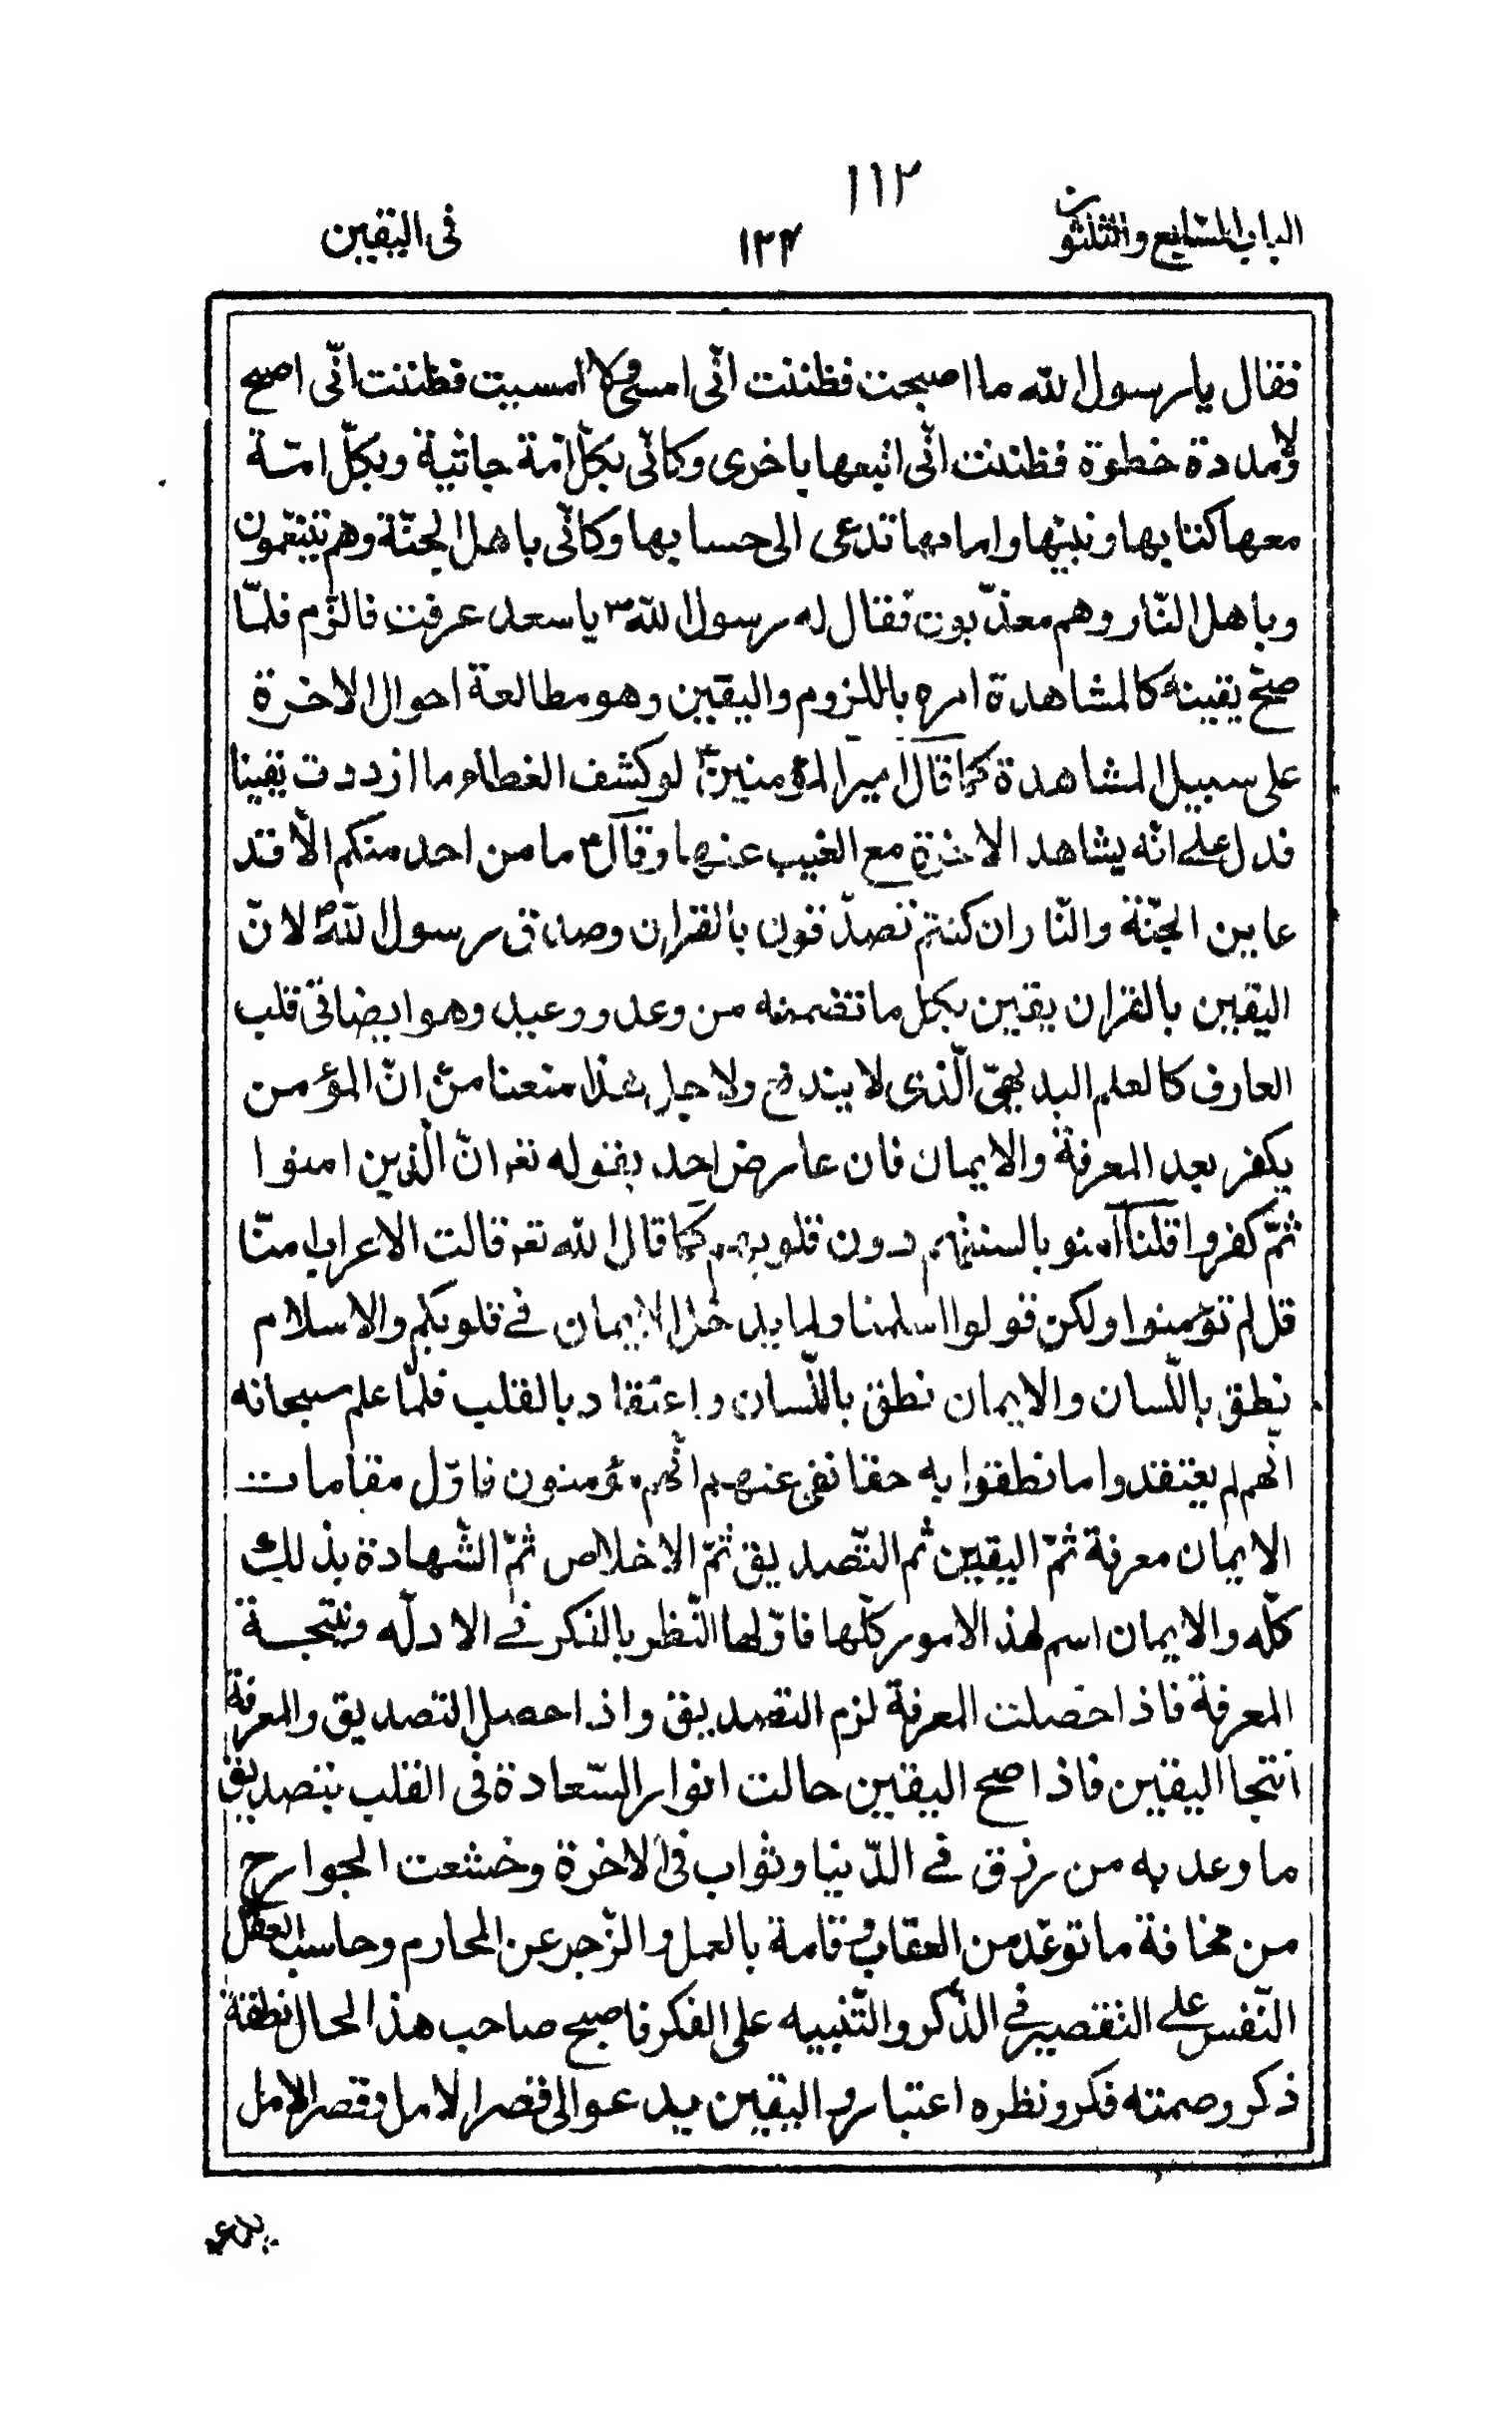 ١١٢
الباب السّابع والثلثون
١٣٤
فى اليقين
فقال يا رسول الله ما اصبحت فظننت انّى امسى ولا امسيت فظننت انّى اصبح
ولا مددة خطوة فظننت انّى اتبعها باخرى وكانّى بكلّ امّة جاثية وبكلّ امّة
معها كتابها ونبيّها وامامها تدعى الى حسابها وكانّى باهل الجنّة وهم يتنعّمون
وباهل النّار وهم معذّبون فقال له رسول الله ص يا سعد عرفت فالزم فلمّا
صحّ يقينه كالمشاهدة امره باللزوم واليقين وهو مطالعة احوال الاخرة
على سبيل المشاهدة كما قال امير المؤمنين ع لو كشف الغطاء ما ازددت يقينا
فدل على انّه يشاهد الاخرة مع الغيب عنها وقال ع ما من احد منكم الّا قد
عاين الجنّة والنّار ان كنتم تصدّقون بالقران وصدق رسول الله ص لانّ
اليقين بالقران يقين بكل ما تضمنه من وعد ووعيد وهو ايضا فى قلب
العارف كالعلم البديهىّ الّذى لا يندفع ولاجل هذا منعنا من انّ المؤمن
يكفر بعد المعرفة والايمان فان عارض احد بقوله تعر انّ الّذين امنوا
ثمّ كفروا قلنا آمنو بالسنتهم دون قلوبهم كما قال الله تعر قالت الاعراب امنّا
قل لم تؤمنوا ولكن قولوا اسلمنا ولما يدخل الايمان فے قلوبكم والاسلام
نطق باللّسان والايمان نطق باللّسان واعتقاد بالقلب فلمّا علم سبحانه
انّهم لم يعتقدوا ما نطقوا به حقا نفى عنهم انّهم مؤمنون فاوّل مقامات
الايمان معرفة ثمّ اليقين ثم التّصديق ثمّ الاخلاص ثمّ الشّهادة بذلك
كلّه والايمان اسم لهذ الامور كلّها فاوّلها النّظر بالفكر فے الادلّه ونتيجة
المعرفة فاذا حصلت المعرفة لزم التصديق واذا حصل التصديق والمعرفة
انتجا اليقين فاذا صح اليقين حالت انوار السّعادة فى القلب بتصديق
ما وعد به من رزق فے الدّنيا وثواب فى الاخرة وخشعت الجوارح
من مخافة ما توعّد من العقاب وقامة بالعمل والزّجر عن المحارم وحاسب العقل
النّفس على التقصير فے الذّكر والتّنبيه على الفكر فاصبح صاحب هذا لحال نطقة
ذكر وصمته فكر ونظره اعتبار واليقين يدعوالى قصر الامل وقصر الامل